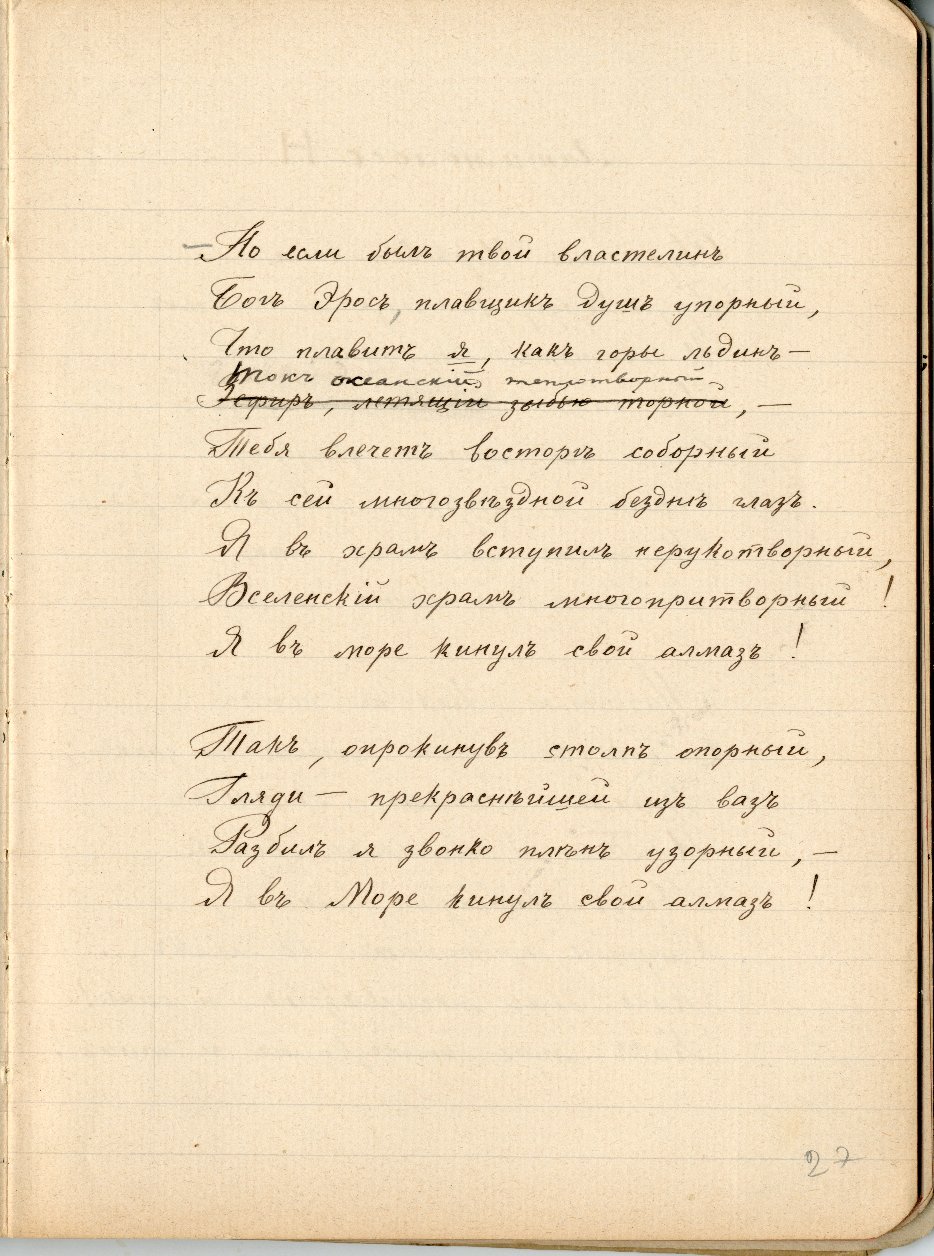 — Но если былъ твой властелинъ
Богъ Эросъ, плавщикъ душъ упорный,
Что плавитъ я, какъ горы льдинъ —
Токъ океанскій теплотворный
Зефиръ, летящій зыбью торной, —
Тебя влечетъ восторгъ соборный
Къ сей многозвѣздной безднѣ глазъ.
Я въ храмъ вступилъ нерукотворный,
Вселенскій храмъ многопритворный!
Я въ море кинулъ свой алмазъ!
Такъ, опрокинувъ столпъ опорный,
Гляди — прекраснѣйшей изъ вазъ
Разбилъ я звонко плѣнъ узорный, —
Я въ Море кинулъ свой алмазъ!
27